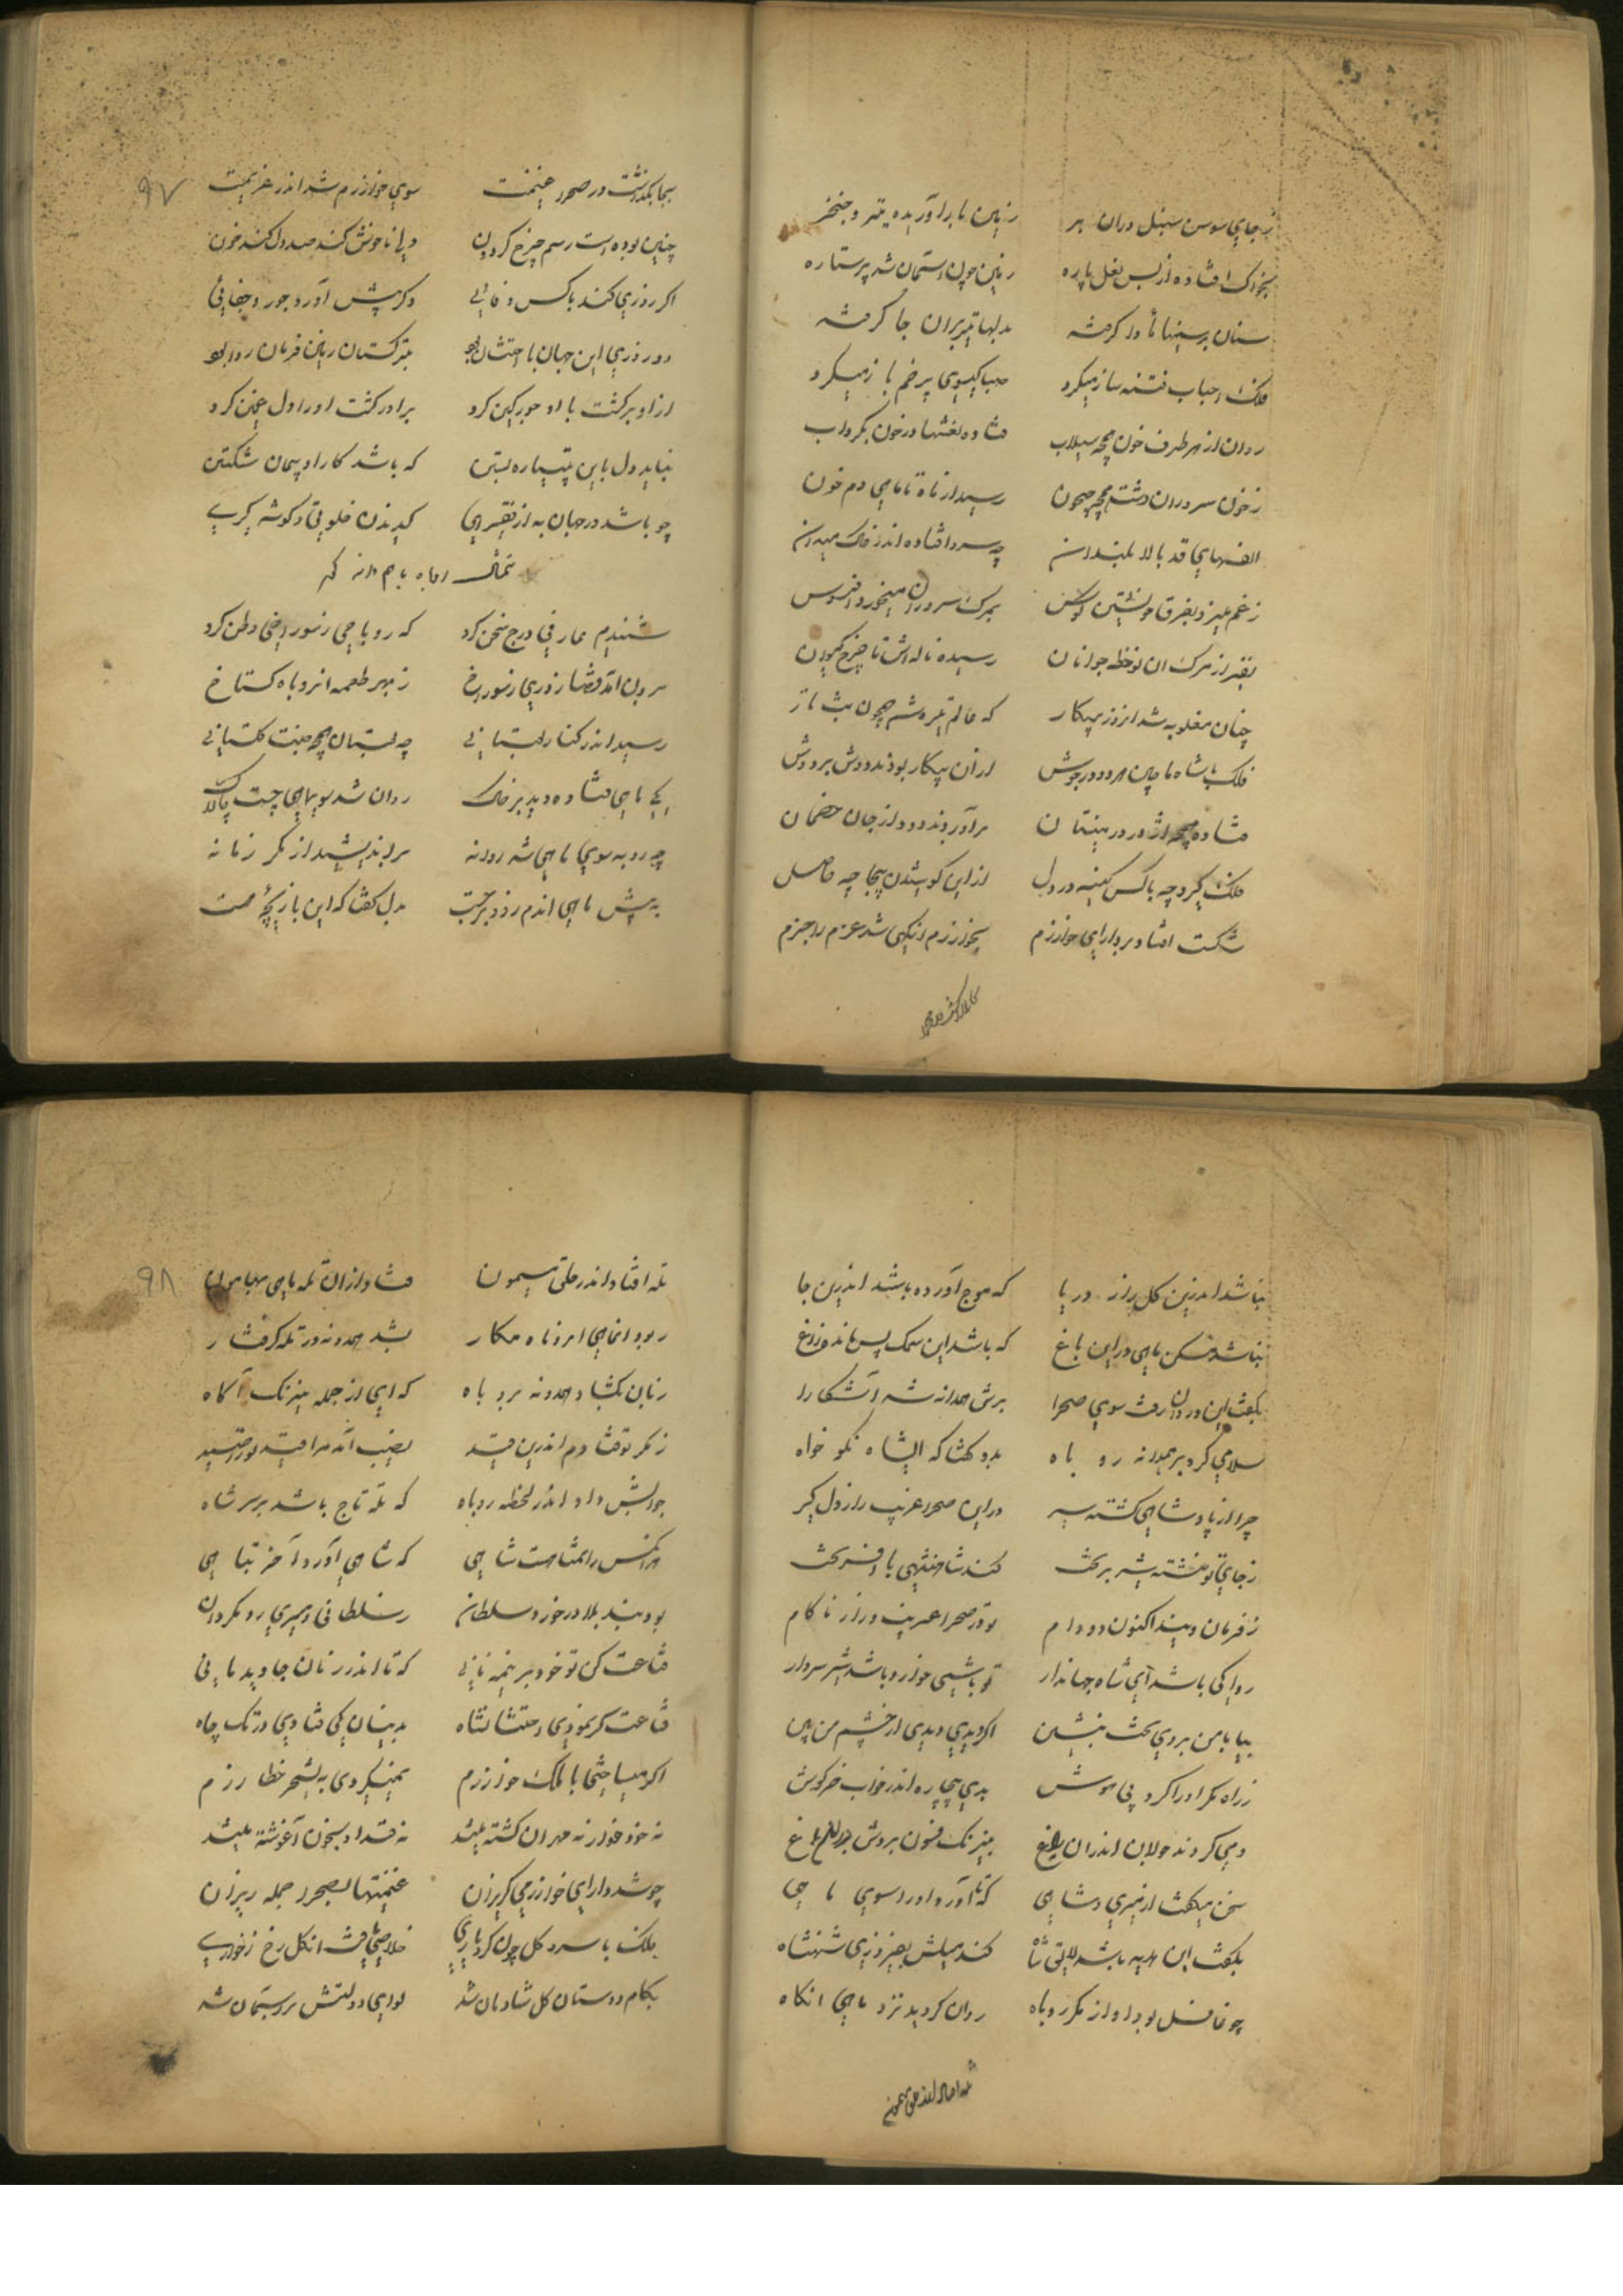 ز جای سوسن سنبل دران بر زمین را برآوریده تیر و خنجر
بخاک افتاده از بس نعل پاره زمین چون آسمان شد پر ستاره
سنان بر سینها مأوا گرفته بدلها تیر بران جا گرفته
فلک اسباب فتنه ساز میکرد صبا گیسوی پرخم باز میکرد
روان از هر طرف خون همچه سیلاب فتاده نعشها در خون بگرداب
ز خون سروران دشت همچه جیحون رسید از ماه تا ماهی دم خون
الفهای قد بالا بلندان چه سرو افتاده اندر خاک میدان
ز غم میزد بفرق خویشتن کوس بمرگ سروران میخورد افسوس
نفیر از مرگ آن نوخطه جوانان رسیده ناله‌اش تا چرخ گردون
چنان مغلوبه شد از روز پیکار که عالم تیره شد همچون شب تار
فلک با شاه ماچین هر دو در جوش در آن پیکار بودند دوش بر دوش
فتاده همچه اژدر در نیستان برآوردند دود از جان خصمان
فلک گیرد چه با کس کینه در دل از این کوشیدن بیجا چه حاصل
شکست افتاد بر دارای خوارزم بخوارزم آنگهی شد عزم را جزم
بجا بگذاشت در صحرا غنیمت سوی خوارزم شد اندر عزیمت
چنین بوده است رسم چرخ گردون دلی ناخوش کند صد دل کند خون
اگر روزی کند باکس وفائی دگر پیش آورد جور و جفائی
دو روزی این جهان با خشان بود بترکستان زمین فرمان روا بود
از او برگشت با او جور کین کرد برادر گشت او را دل غمین کرد
نباید دل باین پتیاره بستن که باشد کار او پیمان شکستن
چو باشد در جهان به از فقیری گزیدن خلوتی و گوشه گیری
شنیدم عارفی درج سخن کرد که روباهی ز سوراخی وطن کرد
برون آمد قضا را روزی ز سوراخ ز بهر طعمه آن روباه گستاخ
رسید اندر کنار بستانی چه بستان همچه جنت گلستانی
یکی ماهی فتاده دید بر خاک روان شد سوی ماهی چست چالاک
چه روبه سوی ماهی شد روانه براندیشید از مکر زمانه
به پیش ماهی اندم زود برجست بدل گفتا که این بازیچهٔ هست
نباشد اندرین گل راز دریا که موج آورده باشد اندرین جا
نباشد مسکن ماهی در این باغ که باشد این سمک پس مانده زاغ
بگفت این و روان رفت سوی صحرا برش همدانه شد آشکارا
سلامی کرد بر همدانه روباه بدو گفتا که ایشاه نکو خواه
چرا از پادشاهی گشته سیر در این صحرا غریب زار و دلگیر
ز جای تو نشسته شیر بر تخت کند شاهنشهی با افسر بخت
ز فرمان ویند اکنون دد و دام تو در صحرا غریب و زار ناکام
روا کی باشد ای شاه جهاندار تو باشی خوار و باشد شیر سردار
بیا با من بروی تخت بنشین اگر دیدی بدی از چشم من بین
ز راه مکر او را کرد بی هوش بدی بیچاره اندر خواب خرگوش
دمی کردند جولان اندران باغ بنیرنگ فسون بردش
سخن میگفت از میری و شاهی که تا آورد او را سوی ماهی
بگفت این هدیه باشد لایق شاه کند میلش بفیروزی شهنشاه
چو غافل بود او از مکر روباه روان گردید نزد ماهی آنگاه
تله افتاد اندر حلق میمون فتاد از آن تله ماهی بهامون
ربود آن ماهی آن روباه مکار بشد همدونه در تله گرفتار
زبان بگشاد همدونه بروباه که ای از جمله نیرنگ آگاه
ز مکر تو فتادم اندرین قید نصیب آمد مرا قید تو را صید
جوابش داد اندر لحظه روباه که تله تاج باشد بر سر شاه
هر آنکس را تمنا هست شاهی که شاهی آورد آخر تباهی
بود بند بلا در خورد سلطان ز سلطانی و میری رو بگردان
قناعت کن تو خود بر نیمه نانی که تا اندر زمان جاوید مانی
قناعت گر نمودی احتشان شاه بدینسان کی فتادی در تک چاه
اگر میساختی با ملک خوارزم نمیکردی به شهر خطا رزم
نه خود خوار نه مهران کشته میشد نه قیدار بخون آغوشته میشد
چو شد دارای خوارزمی گریزان غنیمتها بصحرا جمله ریزان
فلک با سرو گل چون کرد یاری خلاصی یافت آن گل رخ ز خواری
بکام دوستان گل شادمان شد لوای دولتش بر آسمان شد
۹۷
۹۸